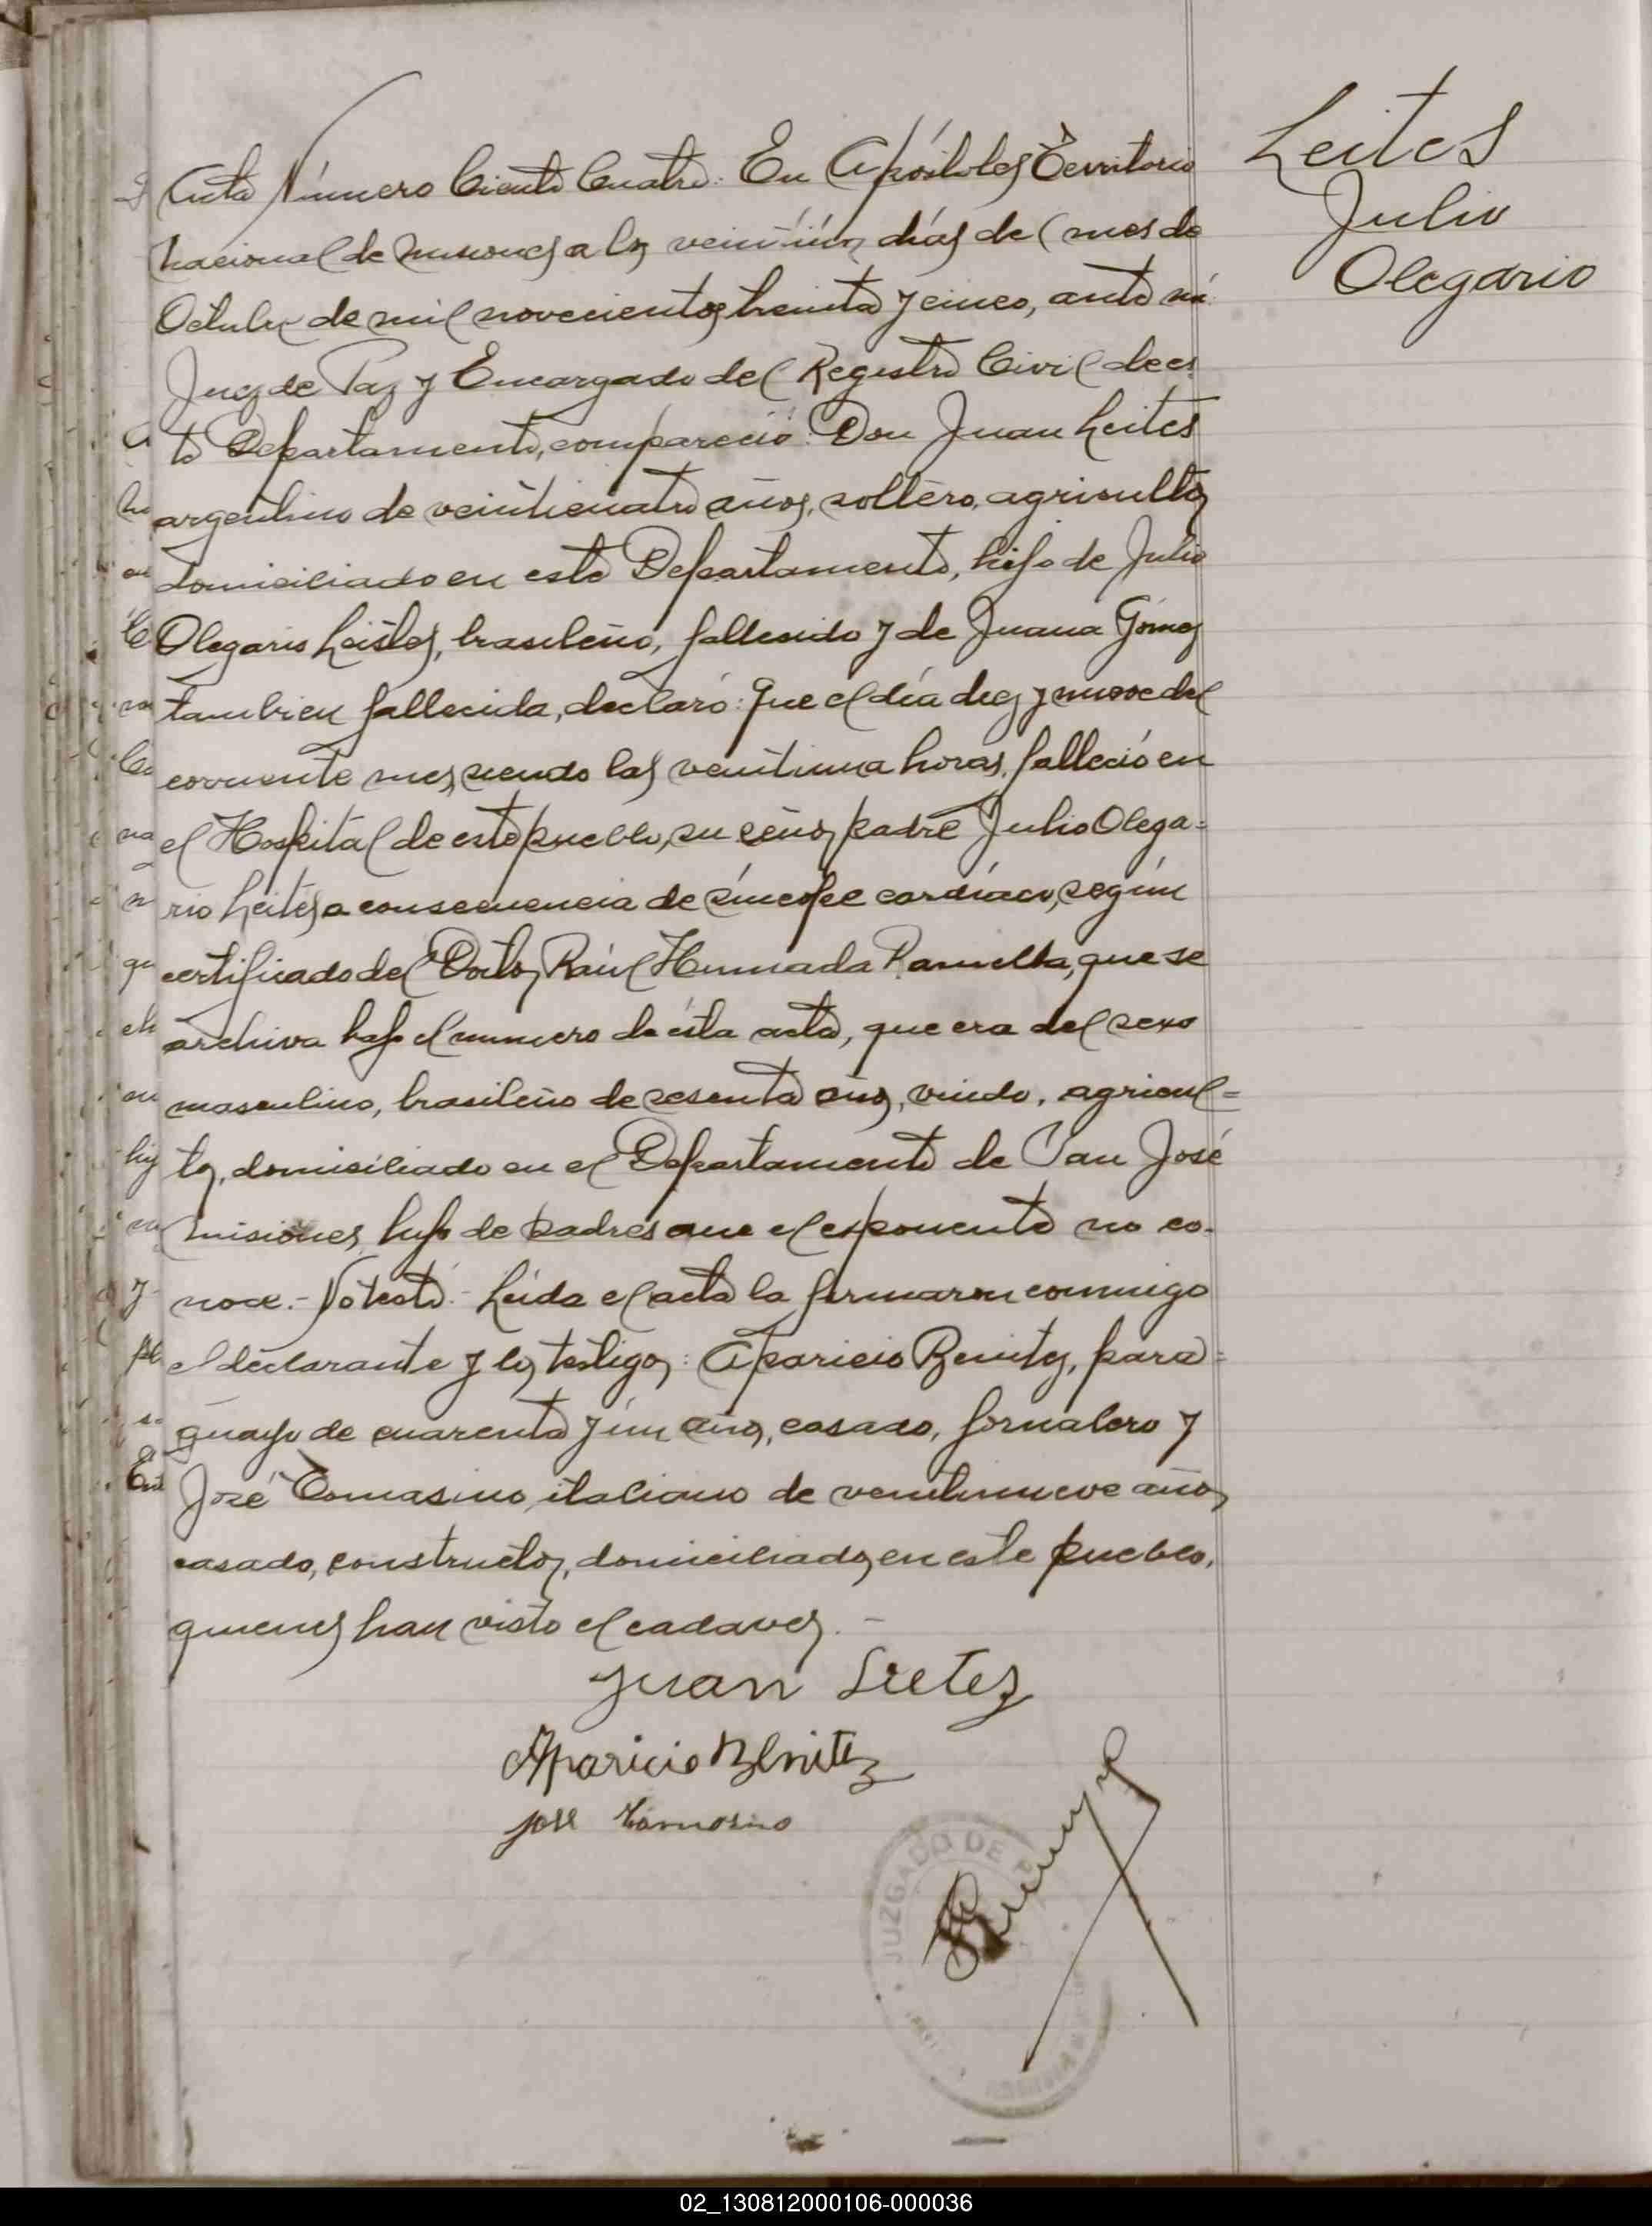 Leites
Julio
Olegario
Acta Número Ciento Cuatro: En Apóstoles Territorio
Nacional de Misiones a los veintiún días del mes de
Octubre de mil novecientos treinta y cinco, ante mi
Juez de Paz y Encargado del Registro Civil de es
te Departamento, compareció: Don Juan Leites
argentino de veinticuatro años, soltero, agricultor
domiciliado en este Departamento, hijo de Julio
Olegario Leites, brasileño, fallecido y de Juana Gómez
tambien fallecida, declaró: Que el día diez y nueve del
corriente mes, siendo las veintiuna horas, falleció en
el Hospital de este pueblo, su señor padre Julio Olega=
rio Leites a consecuencia de síncope cardíaco, según
certificado del Doctor Raúl Humada Ramella, que se
archiva bajo el numero de ésta acta, que era del sexo
masculino, brasileño de sesenta años, viudo, agricul=
tor, domiciliado en el Departamento de San José
Misiones, hijo de padres que el exponente no co-
noce.- No testó.- Leida el acta la firmaron conmigo
el declarante y los testigos: Aparicio Benitez, para=
guayo de cuarenta y un años, casado, jornalero y
José Tomasino, italiano de veintinueve años
casado, constructor, domiciliados en este pueblo,
quienes han visto el cadaver.-
Juan Lietez
Aparicio Benitez
José Tomasino
JUZGADO DE
02_130812000106-000036